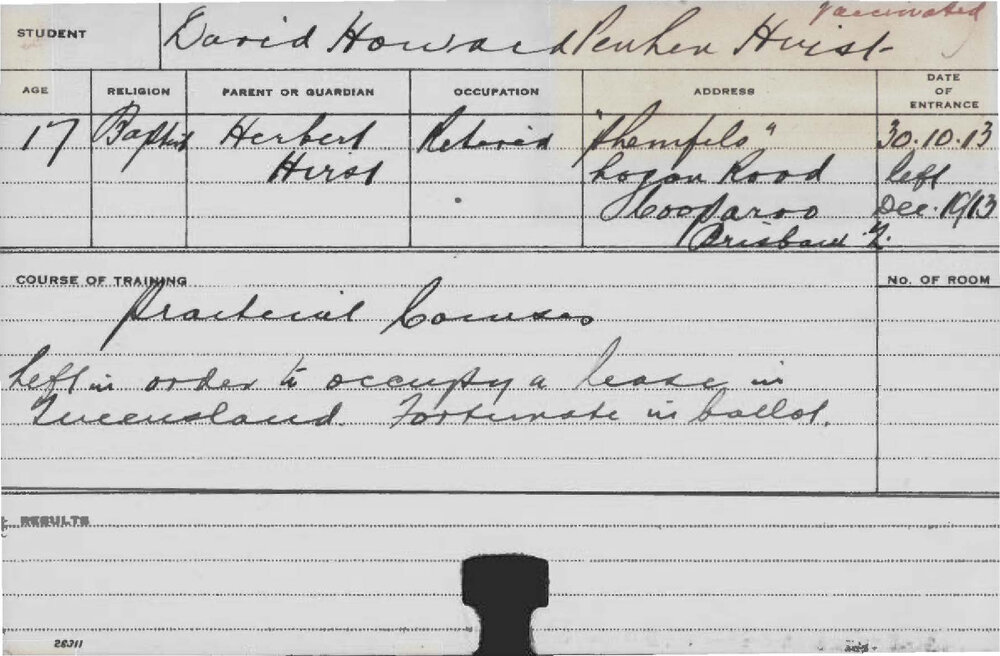 Vaccinated
STUDENT David Howard Reuben Hirst
AGE RELIGION PARENT OR GUARDIAN OCCUPATION ADDRESS DATE OF ENTRANCE
17 Baptist Herbert Retired "Rhemfels" 30.10.13
Hirst Logan Road left
Cooparoo Dec. 1913
Brisbane Q.
COURSE OF TRAINING No. OF ROOM
Practical Course
Left in order to occupy a lease in
Queensland. Fortunate in ballot.
RESULTS